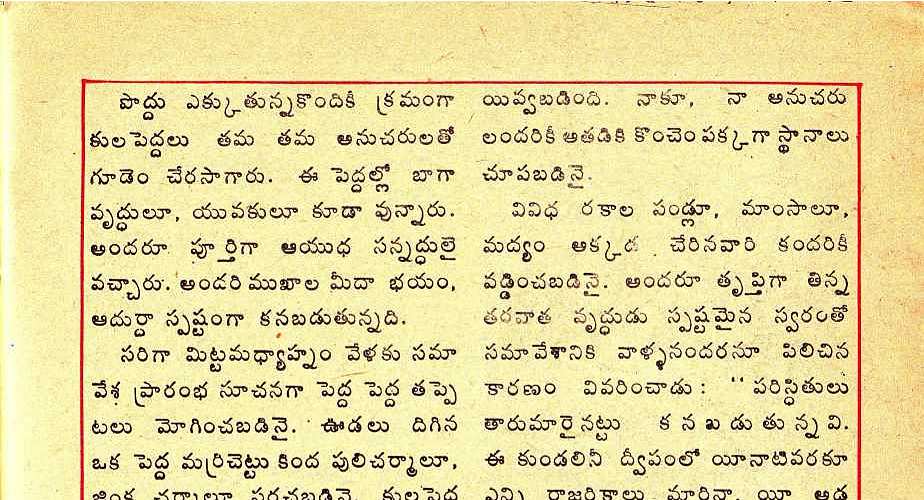 పొద్దు ఎక్కుతున్నకొందికీ క్రమంగా
కులపెద్దలు తమ తమ అనుచరులతో
గూడెం చేరసాగారు. ఈ పెద్దల్లో బాగా
వృద్ధులూ, యువకులూ కూడా వున్నారు.
అందరూ పూర్తిగా ఆయుధ సన్నద్ధులై
వచ్చారు. అందరి ముఖాల మీదా భయం,
ఆదుర్దా స్పష్టంగా కనబడుతున్నది.
సరిగా మిట్టమధ్యాహ్నం వేళకు సమా
వేశ ప్రారంభ సూచనగా పెద్ద పెద్ద తప్పె
టలు మోగించబడినై. ఊడలు దిగిన
ఒక పెద్ద మర్రిచెట్టు కింద పులిచర్మాలూ,
జింక చర్మాలూ పరచబడినై. కులపెద్ద
యివ్వబడింది. నాకూ, నా అనుచరు
లందరికీ ఆతడికి కొంచెం పక్కగా స్థానాలు
చూపబడినై.
వివిధ రకాల పండ్లూ, మాంసాలూ,
మద్యం అక్కడ చేరినవారి కందరికీ
వడ్డించబడినై. అందరూ తృప్తిగా తిన్న
తరవాత వృద్ధుడు స్పష్టమైన స్వరంతో
సమావేశానికి వాళ్ళనందరనూ పిలిచిన
కారణం వివరించాడు: "పరిస్థితులు
తారుమారైనట్టు కనబడుతున్నవి.
ఈ కుండలినీ ద్వీపంలో యీనాటివరకూ
ఎన్ని రాజరికాలు మారినా, యీ